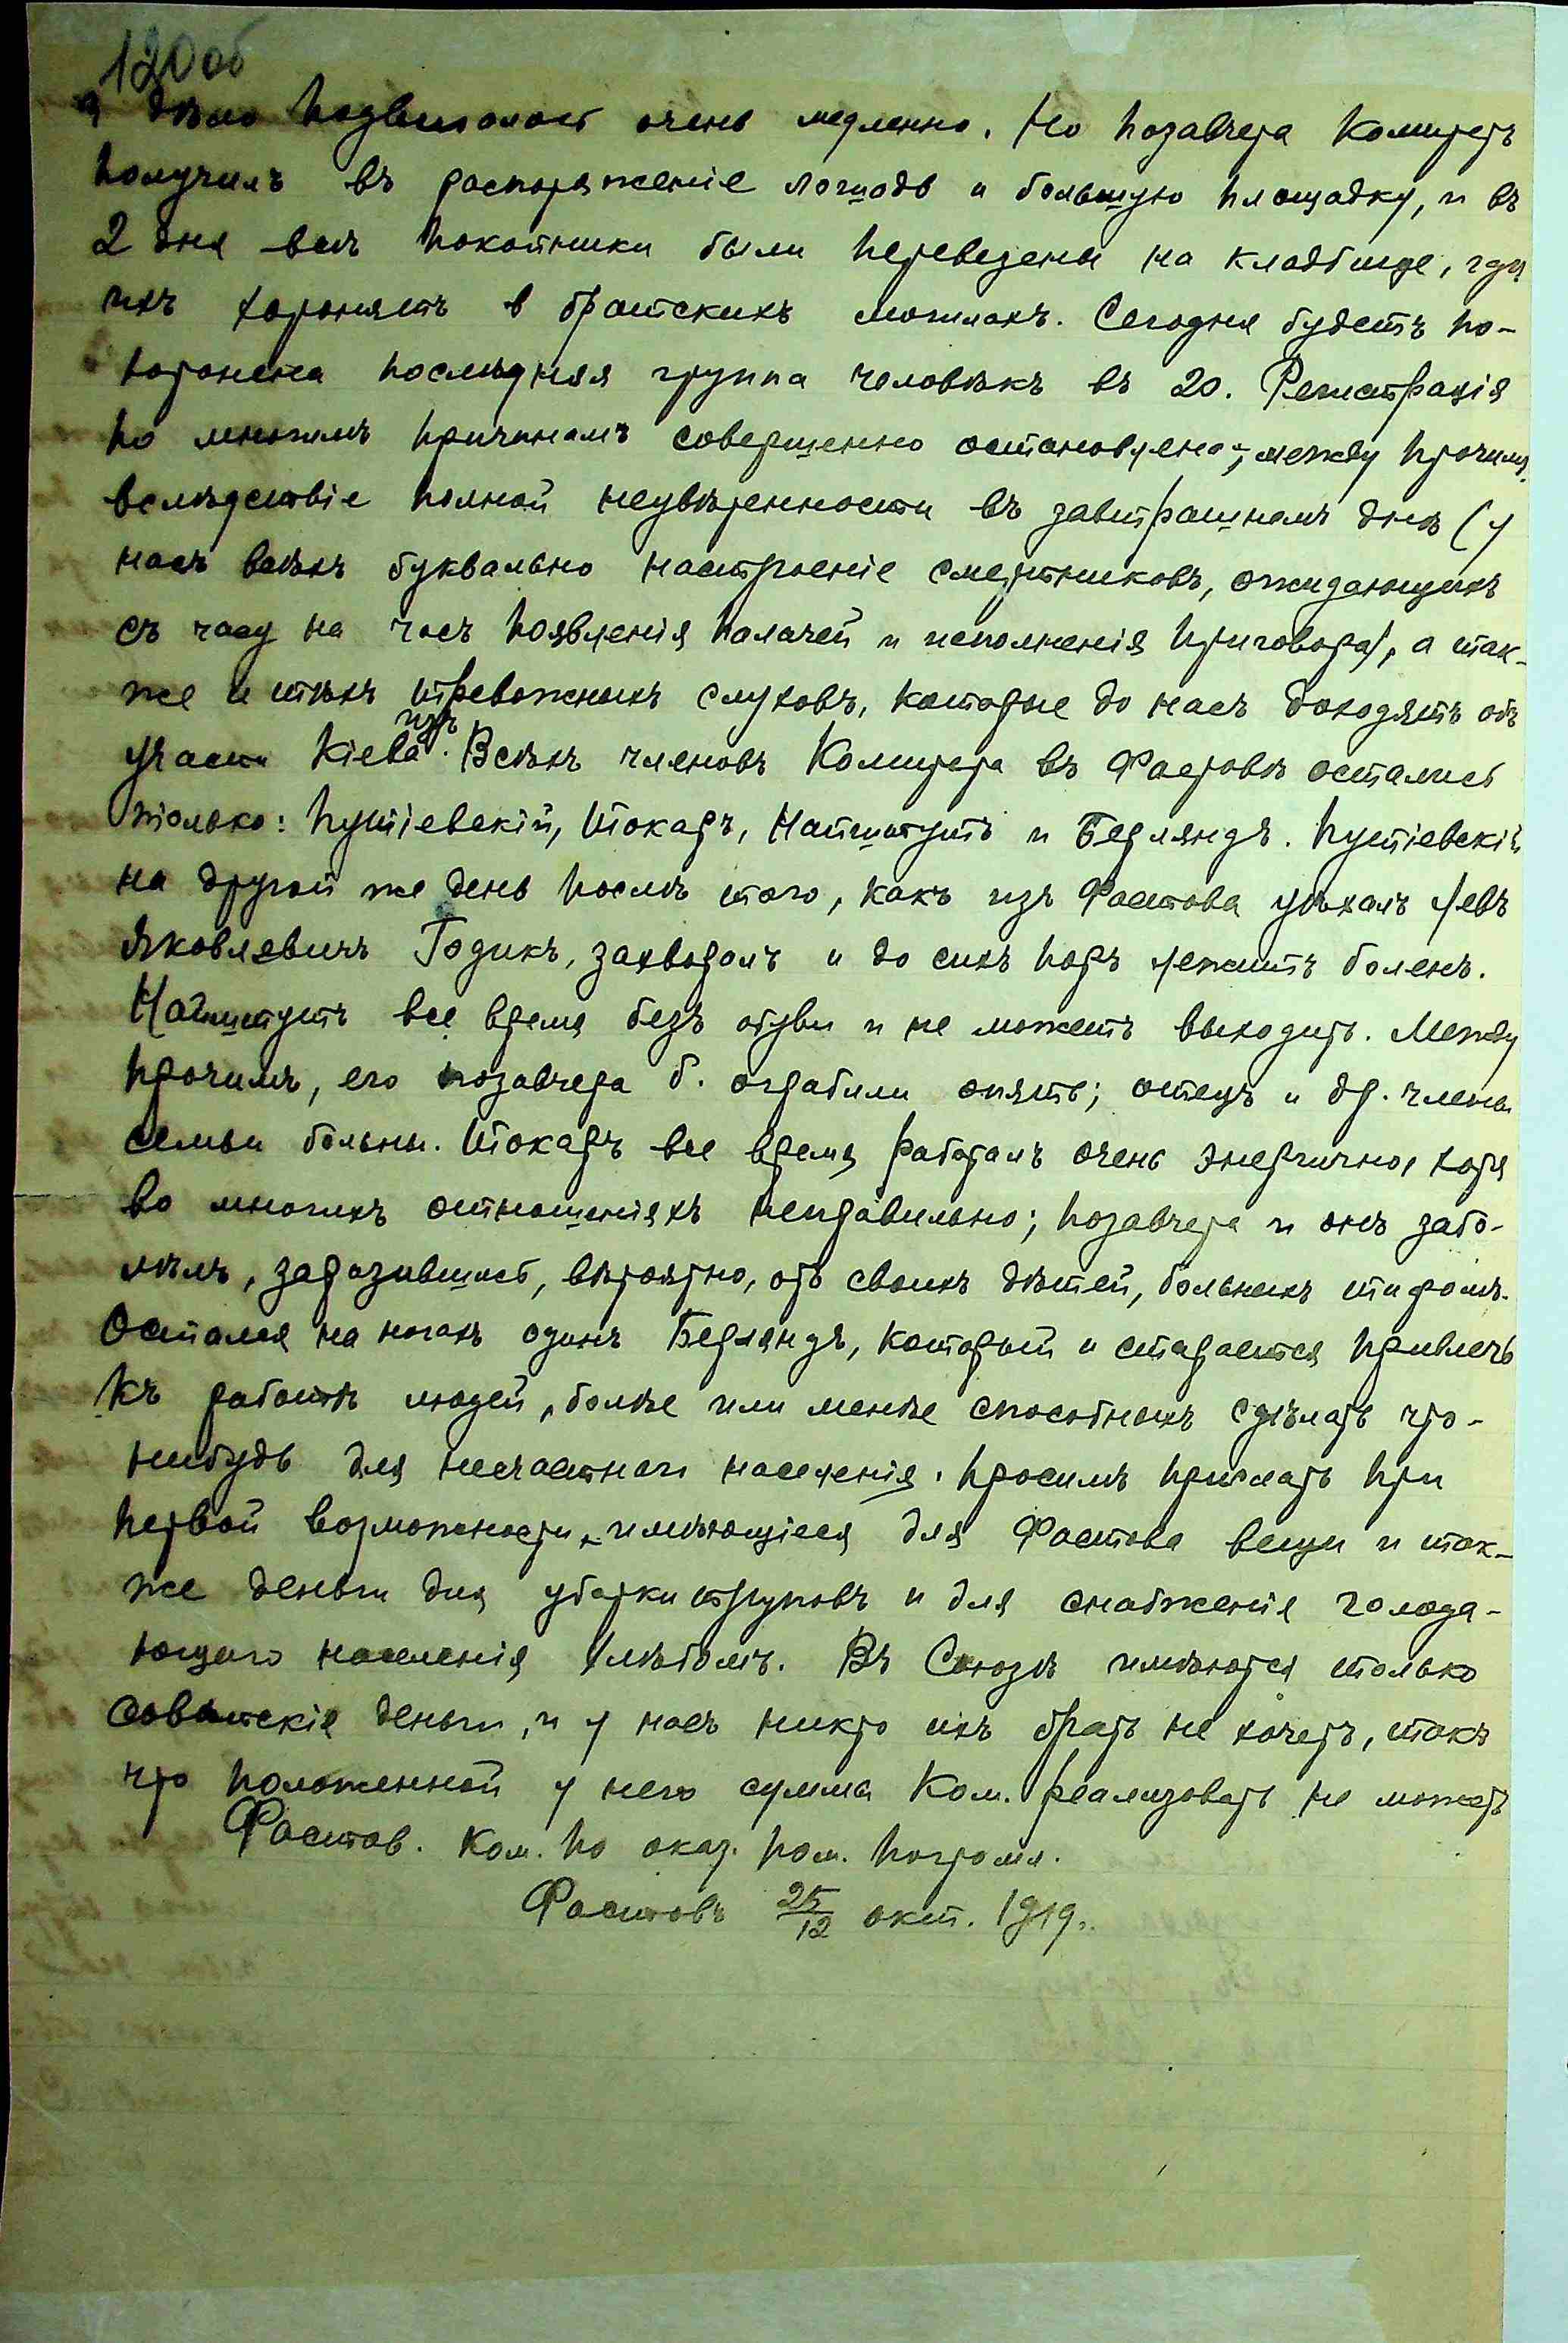 120об
и дѣло подвигалось очень медленно. Но позавчера Комитетъ
получилъ въ распоряженіе лошадь и большую площадку, и въ
2 дня всѣ покойники были перевезены на кладбище, гдѣ
ихъ хоронятъ в братскихъ могилахъ. Сегодня будетъ по-
хоронена послѣдняя группа человѣкъ въ 20. Регистрація
по многимъ причинамъ совершенно остановлена; между прочимъ,
вслѣдствіе полной неувѣренности въ завтрашнемъ днѣ (у
насъ всѣхъ буквально настроеніе смертниковъ, ожидающихъ
съ часу на часъ появленія палачей и исполненія приговора), а так-
же и тѣхъ тревожныхъ слуховъ, которые до насъ доходятъ объ
участи Кіева. изъ Всѣхъ членовъ Комитета въ Фастовѣ остались
только: Путіевскій, Токарь, Найштутъ и Берляндъ. Путіевскій
на другой же день послѣ того, какъ изъ Фастова уѣхалъ Левъ
Яковлевичъ Годикъ, захворалъ и до сихъ поръ лежитъ боленъ.
Найштутъ все время безъ обуви и не можетъ выходить. Между
прочимъ, его позавчера б. ограбили опять; отецъ и др. члены
семьи больны. Токарь все время работалъ очень энергично, хотя
во многихъ отношеніяхъ неправильно; позавчера и онъ забо-
лѣлъ, заразившись, вѣроятно, отъ своихъ дѣтей, больныхъ тифомъ.
Остался на ногахъ одинъ Берляндъ, который и старается привлечь
къ работѣ людей, болѣе или менѣе способныхъ сдѣлать что-
нибудь для несчастнаго населенія. Просимъ прислать при
первой возможности, имѣющіеся для Фастова вещи и так-
же деньги для уборки труповъ и для снабженія голода-
ющаго населенія хлѣбомъ. Въ Союзѣ имѣются только
совѣтскіе деньги, и у насъ никто ихъ брать не хочетъ, такъ
что положенной у него сумма Ком. реализовать не можетъ
Фастов. Ком. по оказ. пом. погромл.
Фастовъ 25/12 окт. 1919г.